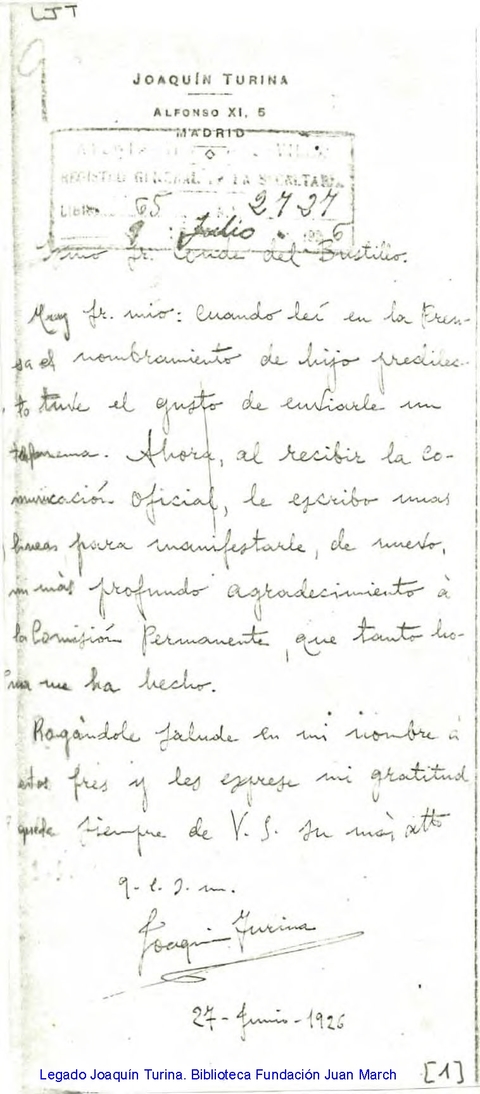 LJT
JOAQUÍN TURINA
ALFONSO XI, 5
MADRID
REGISTRO GENERAL DE LA SECRETARIA
LIBRO 65 2727
9 Julio 6
Sr. Conde del Bustillo.
Muy Sr. mio: Cuando leí en la Pren-
sa el nombramiento de hijo predilec-
to tuve el gusto de enviarle un
telefonema. Ahora, al recibir la co-
municación oficial, le escribo unas
lineas para manifestarle, de nuevo,
mi más profundo agradecimiento á
la Comisión Permanente, que tanto ho-
nor me ha hecho.
Rogándole salude en mi nombre á
estos Sres y les exprese mi gratitud
queda siempre de V. S. su más atto
q. e. s. m.
Joaquín Turina
27-Junio-1926
Legado Joaquín Turina. Biblioteca Fundación Juan March
[1]